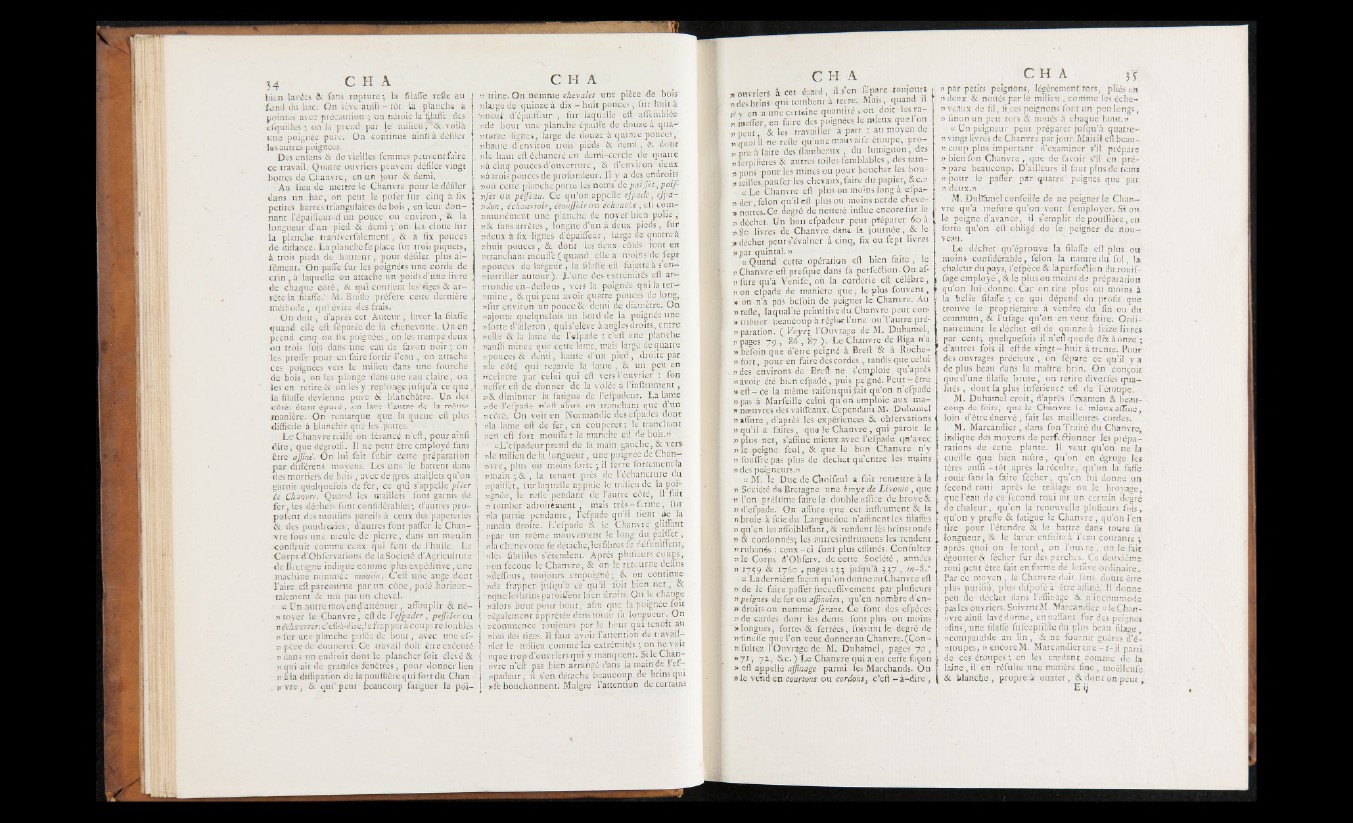 34 CHA
bien lavées & sans rupture; la filasse reste au
fond du bac. On lève aussi-tôt la planche à
pointes avec précaution; on nétoie la filasse des
esquilles; on la prend par le milieu, & voilà
une poignée pure. On continue ainsi à défiler
les autres poignées.
Des enfans & de vieilles femmes peuvent faire
ce travail. Quatre ouvriers peuvent défiler vingt
bottes de Chanvre, en un jour & demi.
Au lieu de mettre le Chanvre pour le défiler
dans un bac, on peut le poser sur cinq à six
petites barres triangulaires de bois, en leur don-
nant l'épaisseur d'un pouce ou environ, & la
longueur d'un pied & demi; on les cloue sur
la planche transversalement, & à six pouces
de distance. La planche se place sur trois piquets,
à trois pieds de hauteur, pour défiler plus ai-
sément. On passe sur les poignées une corde de
crin, à laquelle on attache un poids d'une livre
de chaque côté, & qui contient les tiges & ar-
rête la filasse. M. Brulle préfère cette dernière
méthode, qui évite des frais.
On doit, d'après cet Auteur, laver la filasse
quand elle est séparée de la chenevotte. On en
prend cinq ou six poignées, on les trempe deux
ou trois fois dans une eau de savon noir; on
les presse pour en faire sortir l'eau, on attache
ces poignées vers le milieu dans une fourche
de bois, on les plonge dans une eau claire, on
les en retire & on les y replonge jusqu'à ce que
la filasse devienne pure & blanchâtre. Un des
côtés étant épuré, on lave l'autre de la même
manière. On remarque que la queue est plus
difficile à blanchir que les pattes.
Le Chanvre teillé ou sérancé n'est, pour ainsi
dire, que dégrossi. Il ne peut être employé sans
être affiné. On lui fait subir cette préparation
par différens moyens. Les uns le battent dans
des mortiers de bois, avec de gros maillets qu'on
garnit quelquefois de fer, ce qui s'appelle piler
le Chanvre. Quand les maillets sont garnis de
fer, les déchets sont considérables; d'autres pro-
posent des moulins pareils à ceux des papeteries
& des poudreries; d'autres font passer le Chan-
vre sous une meule de pierre, dans un moulin
construit comme ceux qui font de l'huile. Le
Corps d'Observations de la Société d'Agriculture
de Bretagne indique comme plus expéditive, une
machine nommée moulin. C'est une auge dont
l'aire est parcourue par un cône, posé horizon-
talement & mu par un cheval.
« Un autre moyen d'atténuer, assouplir & né-
» toyer le Chanvre, est de l'espader, pesseler ou
» échanvrer: c'est-à-dire, le frapper à coups redoublés
» sur une planche posée de bout, avec une es-
» pèce de couperet. Ce travail doit être exécuté
» dans un endroit dont le plancher soit élevé &
» qui ait de grandes fenêtres, pour donner lieu
» à la dissipation de la poussière qui sort du Chan-
» vre, & qui peut beaucoup fatiguer la poi-
CHA
» trine. On nomme chevalet une pièce de bois
» large de quinze à dix-huit pouces, sur huit à
» neuf d'épaisseur, sur laquelle est assemblée
» de bout une planche épaisse de douze à qua-
» torze lignes, large de douze à quinze pouces,
» haute d'environ trois pieds & demi, & dont
» le haut est échancré en demi-cercle de quatre
» à cinq pouces d'ouverture, & d'environ deux
» à trois pouces de profondeur. Il y a des endroits
» où cette planche porte les noms de paisset, pois-
» set ou pesseau. Ce qu'on appelle espade, espa-
» don, échanvroir, écouffoir ou échuche, est com-
» munément une planche de noyer bien polie,
» & sans arrêtes, longue d'un à deux pieds, sur
» deux à six lignes d'épaisseur, large de quatre à
» huit pouces, & dont les deux côtés sont en
» tranchant mousse (quand elle a moins de sept
» pouces de largeur, la filasse est sujette à s'en-
» tortiller autour). L'une des extrémités est ar-
» rondie en-dessous, vers la poignée qui la ter-
» mine, & qui peut avoir quatre pouces de long,
» sur environ un pouce & demi de diamètre. On
» ajoute quelquefois au bord de la poignée une
» sorte d'aileron, qui s'élève à angles droits, entre
» elle & la lame de l'espade: c'est une planche
» aussi mince que cette lame, mais large de quatre
» pouces & demi, haute d'un pied, droite par
» le côté qui regarde la lame, & un peu en
» ceintre par celui qui est vers l'ouvrier: son
» effet est de donner de la volée à l'instrument,
» & diminuer la fatigue de l'espadeur. La lame
» de l'espade n'est alors en tranchant que d'un
» côté. On voit en Normandie des espades dont
» la lame est de fer, en couperet; le tranchant
» en est fort mousse: le manche est de bois. »
« L'espadeur prend de la main gauche, & vers
» le milieu de la longueur, une poignée de Chan-
» vre, plus ou moins forte; il serre fortement la
» main; &, la tenant près de l'échancrure du
» paisset, sur laquelle appuie le milieu de la poi-
» gnée, le reste pendant de l'autre côté, il fait
» tomber adroitement, mais très-ferme, sur
» la partie pendante, l'espade qu'il tient de la
» main droite. L'espade & le Chanvre glissant
» par un même mouvement le long du paisset,
» la chenevotte se détache, les fibres se désunissent,
» les subtiles s'étendent. Après plusieurs coups,
» on secoue le Chanvre, & on le retourne dessus
» dessous, toujours empoigné; & on continue
» de frapper jusqu'à ce qu'il soit bien net, &
» que les brins paroissent bien droits. On le change
» alors bout pour bout, afin que la poignée soit
» également apprêtée dans toute sa longueur. On
» commence toujours par le bout qui tenoit au
» bas des tiges. Il faut avoir l'attention de travail-
» ler le milieu comme les extrémités; on ne voit
» que trop d'ouvriers qui y manquent. Si le Chan-
» vre n'est pas bien arrangé dans la main de l'es-
» padeur, il s'en détache beaucoup de brins qui
» se bouchonnent. Malgré l'attention de certains
CHA
» ouvriers à cet égard, il s'en sépare toujours
» des brins qui tombent à terre. Mais, quand il
» y en a une certaine quantité, on doit les ra-
» masser, en faire des poignées le mieux que l'on
» peut, & les travailler à part: au moyen de
» quoi il ne reste qu'une mauvaise étoupe, pro-
» pre à faire des flambeaux, du lumignon, des
» serpillières & autres toiles semblables, des tam-
» pons pour les mines ou pour boucher les bou-
» teilles, panser les chevaux, faire du papier, &c. »
« Le Chanvre est plus ou moins long à espa-
» der, selon qu'il est plus ou moins net de cheve-
» nottes. Ce degré de netteté influe encore sur le
» déchet. Un bon espadeur peut préparer 60 à
» 80 livres de Chanvre dans sa journée, & le
» déchet peut s'évaluer à cinq, six ou sept livres
» par quintal. »
« Quand cette opération est bien faite, le
» Chanvre est presque dans sa perfection. On as-
» sure qu'à Venise, où la corderie est célèbre,
» on espade de manière que, le plus souvent,
» on n'a pas besoin de peigner le Chanvre. Au
» reste, la qualité primitive du Chanvre peut con-
» tribuer beaucoup à régler l'une ou l'autre pré-
» paration. (Voyez l'Ouvrage de M. Duhamel,
» pages 79, 86, 87). Le Chanvre de Riga n'a
» besoin que d'être peigné à Brest & à Roche-
» fort, pour en faire des cordes, tandis que celui
» des environs de Brest ne s'emploie qu'après
» avoir été bien espadé, puis peigné. Peut-être
» est-ce la même raison qui fait qu'on n'espade
» pas à Marseille celui qu'on emploie aux ma-
» nœuvres des vaisseaux. Cependant M. Duhamel
» assure, d'après les expériences & observations
» qu'il a faites, que le Chanvre, qui paroît le
» plus net, s'affine mieux avec l'espade qu'avec
» le peigne seul, & que le bon Chanvre n'y
» souffre pas plus de déchet qu'entre les mains
» des peigneurs. »
« M. le Duc de Choiseul a fait remettre à la
» Société de Bretagne une broye de Livonie, que
» l'on présume faire le double office de broye &
» d'espade. On assure que cet instrument & la
» broie à scie du Languedoc n'affinent les filasses
» qu'en les affoiblissant, & rendent les brins ronds
» & cordonnés; les autres instrumens les rendent
» rubanés: ceux-ci sont plus estimés. Consultez
» le Corps d'Observ. de cette Société, années
» 1759 & 1760, pages 133 jusqu'à 337, in-8.°
« La dernière façon qu'on donne au Chanvre est
» de le faire passer successivement par plusieurs
» peignes de fer ou affinoirs, qu'en nombre d'en-
» droits on nomme sérans. Ce sont des espèces
» de cardes dont les dents sont plus ou moins
» longues, fortes & serrées, suivant le degré de
» finesse que l'on veut donner au Chanvre. (Con-
» sultez l'Ouvrage de M. Duhamel, pages 70,
» 71, 72, &c.) Le Chanvre qui a eu cette façon
» est appellé affinage parmi les Marchands. On
» le vend en courtons ou cordons, c'est-à-dire,
CHA 35
» par petits peignons, légèrement tors, pliés en
» deux & noués par le milieu, comme les éche-
» veaux de fil, si ces peignons sont un peu longs,
» sinon un peu tors & noués à chaque bout. »
« Un peigneur peut préparer jusqu'à quatre-
» vingt livres de Chanvre par jour. Mais il est beau-
» coup plus important d'examiner s'il prépare
» bien son Chanvre, que de savoir s'il en pré-
» pare beaucoup. D'ailleurs il faut plus de tems
» pour le passer par quatre peignes que par
» deux. »
M. Duhamel conseille de ne peigner le Chan-
vre qu'à mesure qu'on veut l'employer. Si on
le peigne d'avance, il s'emplit de poussière, en
sorte qu'on est obligé de le peigner de nou-
veau.
Le déchet qu'éprouve la filasse est plus ou
moins considérable, selon la nature du sol, la
chaleur du pays, l'espèce & la perfection du rouis-
sage employé, & le plus ou moins de préparation
qu'on lui donne. Car on tire plus ou moins à
la belle filasse; ce qui dépend du profit que
trouve le propriétaire à vendre du fin ou du
commun, & l'usage qu'on en veut faire. Ordi-
nairement le déchet est de quinze à seize livres
par cent, quelquefois il n'est que de dix à onze;
d'autres fois il est de vingt-huit à trente. Pour
des ouvrages précieux, on sépare ce qu'il y a
de plus beau dans le maître brin. On conçoit
que d'une filasse brute, on retire diverses qua-
lités, dont la plus inférieure est de l'étoupe.
M. Duhamel croit, d'après l'examen & beau-
coup de faits, que le Chanvre le mieux affiné,
loin d'être énervé, fait les meilleures cordes.
M. Marcandier, dans son Traité du Chanvre,
indique des moyens de perfectionner les prépa-
rations de cette plante. Il veut qu'on ne la
cueille que bien mûre, qu'on en égruge les
têtes aussi-tôt après la récolte, qu'on la fasse
rouir sans la faire sécher, qu'on lui donne un
second roui après le teillage ou le broyage,
que l'eau de ce second roui ait un certain degré
de chaleur, qu'on la renouvelle plusieurs fois,
qu'on y presse & fatigue le Chanvre, qu'on l'en
tire pour l'étendre & le battre dans toute sa
longueur, & le laver ensuite à l'eau courante;
après quoi on le tord, on l'ouvre, on le fait
égoutter & sécher sur des perches. Ce deuxième
roui peut être fait en forme de lessive ordinaire.
Par ce moyen, le Chanvre doit sans doute être
plus purifié, plus disposé à être affiné. Il donne
peu de déchet dans l'affinage & n'incommode
pas les ouvriers. Suivant M. Marcandier « le Chan-
» vre ainsi lavé donne, en passant sur des peignes
» fins, une filasse susceptible du plus beau filage,
» comparable au lin, & ne fournit guères d'é-
» toupes, » encore M. Marcandier tire-t-il parti
de ces étoupes; en les cardant comme de la
laine, il en résulte une matière fine, moëlleuse
& blanche, propre à ouater, & dont on peut,
E ij